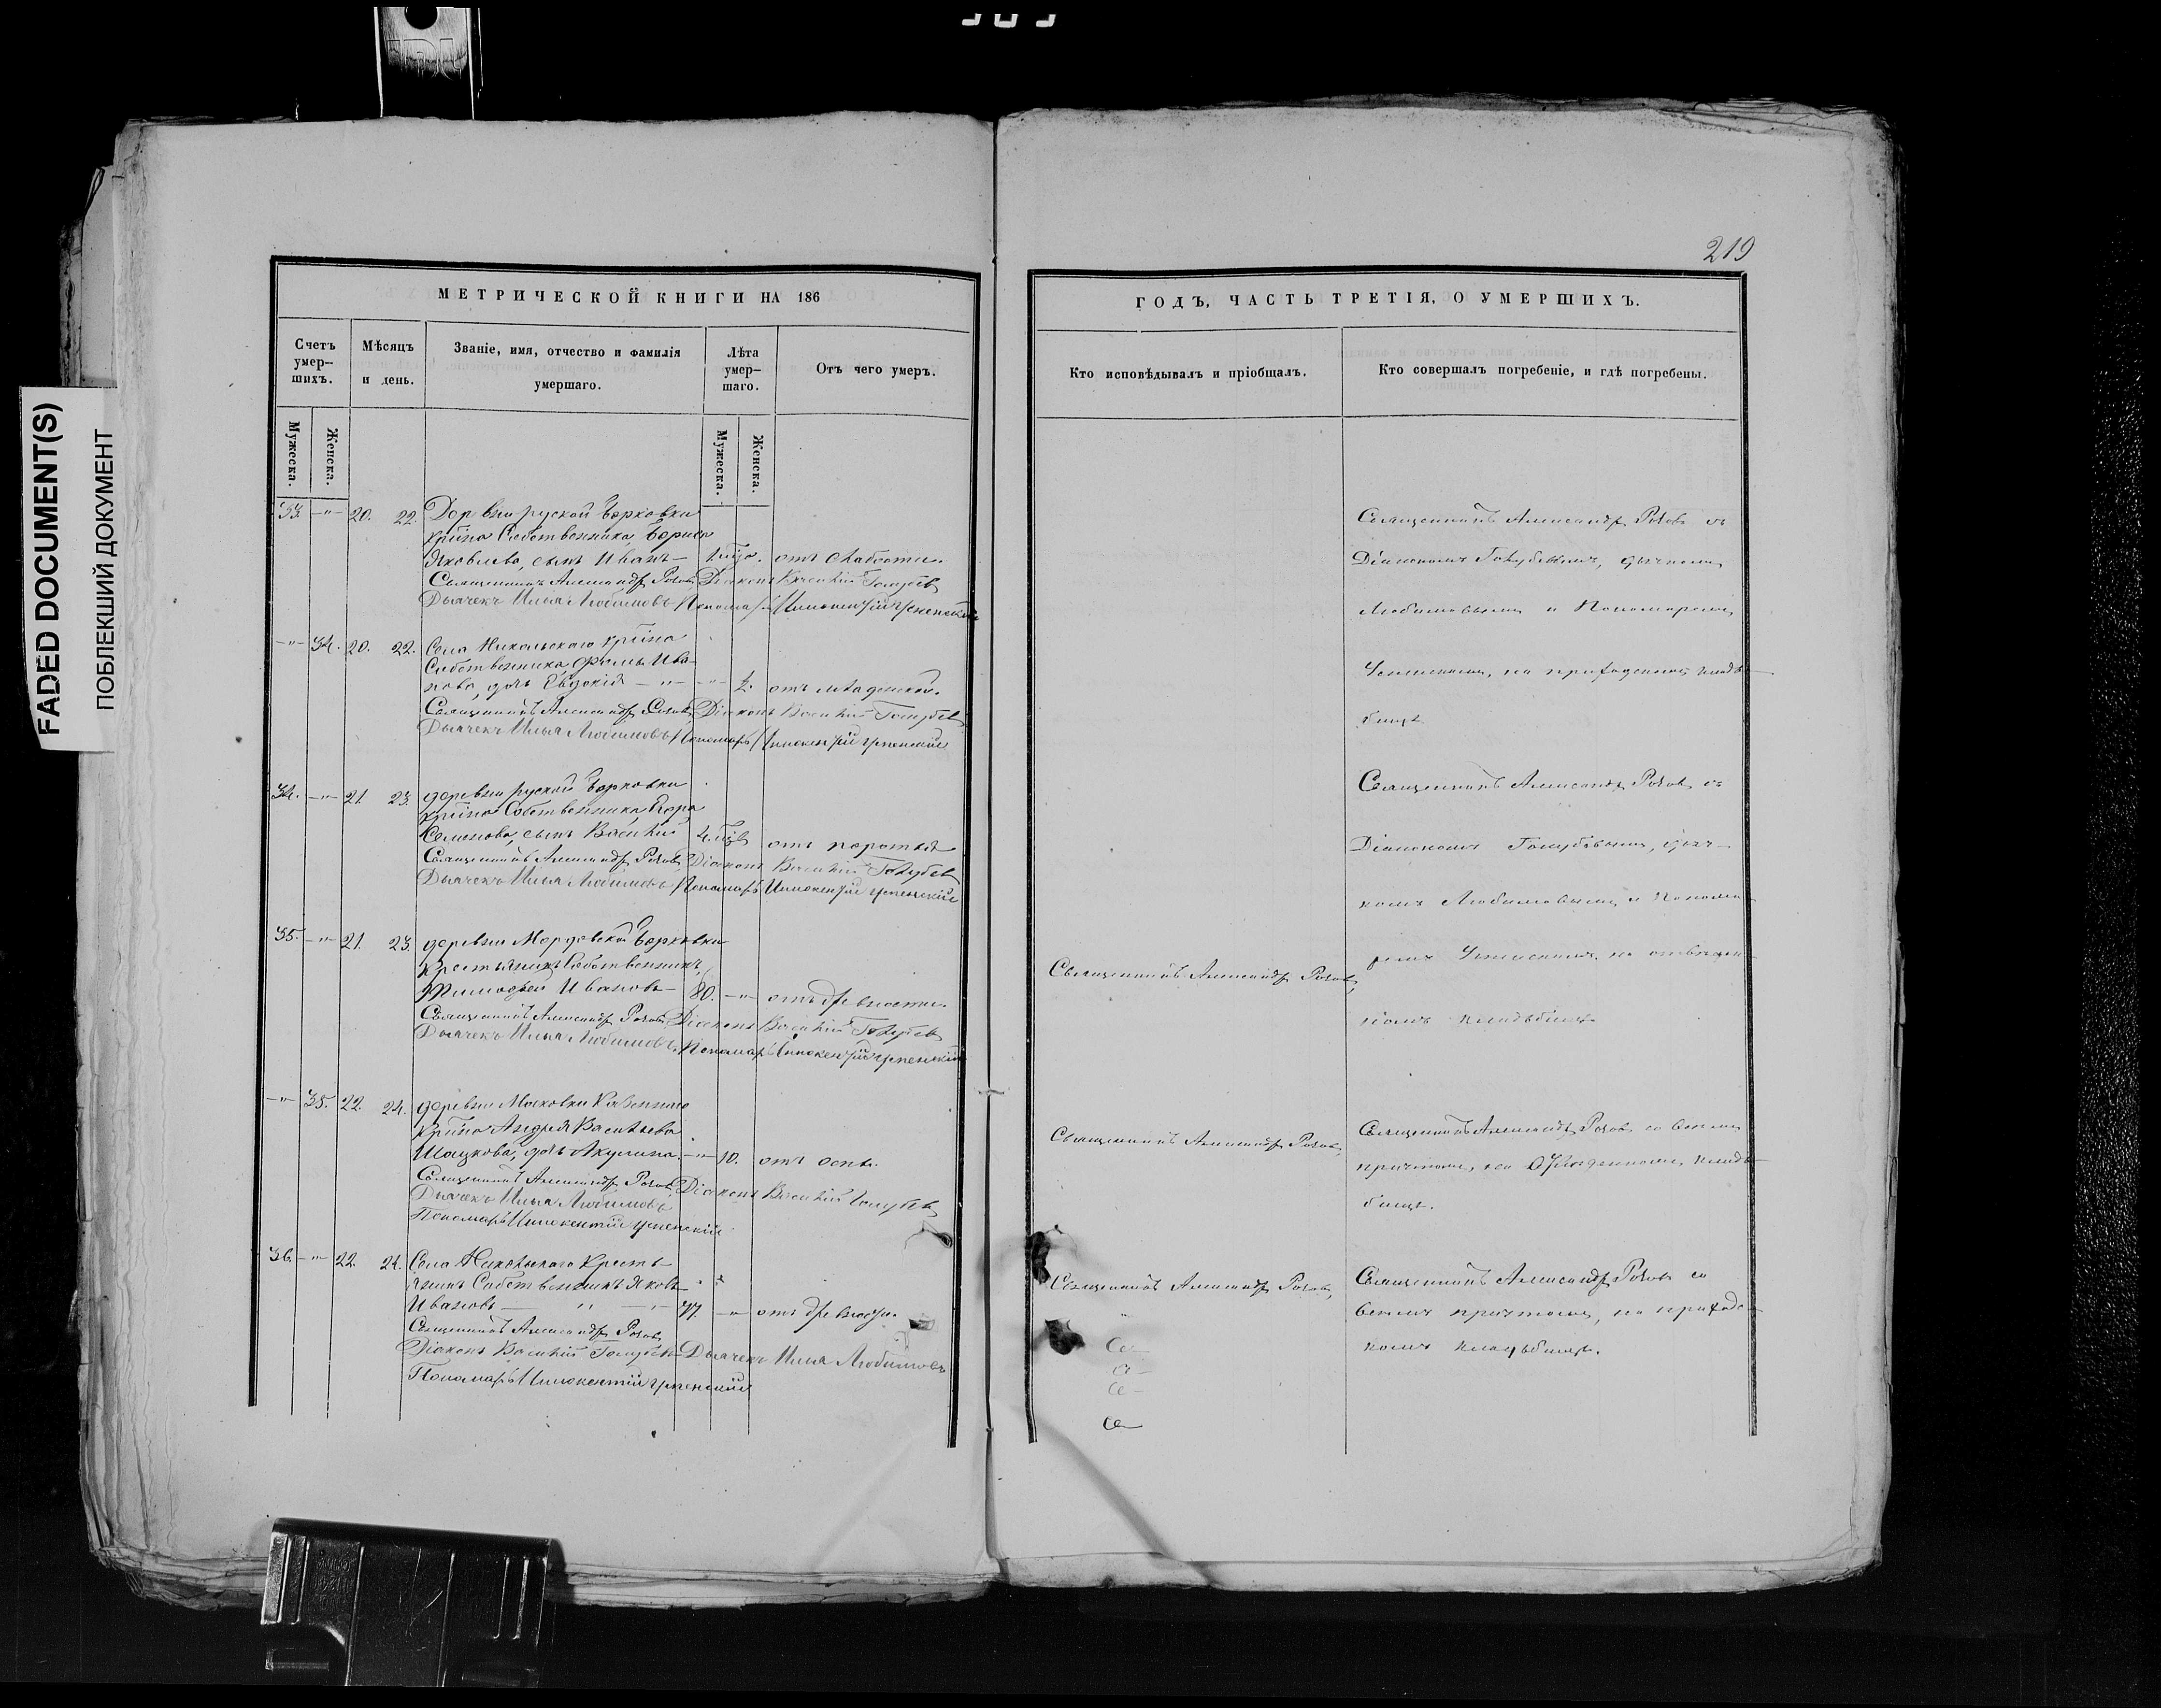 FADED DOCUMENT(S)
ПОБЛЕКШИЙ ДОКУМЕНТ
219
МЕТРИЧЕСКОЙ КНИГИ НА 186
Счетъ умер–шихъ.
Мѣсяцъ и день.
Званіе, имя, отчество и фамилія умершаго.
Лѣта умер–шаго.
Отъ чего умеръ.
Мужеска.
Женска.
Мужеска.
Женска.
33. —"— 20. 22. Деревни руской Борковки
крт͠ина Собственника, Бориса
Яковлева, сынъ Иванъ — отъ слабости.
Священникъ Александръ Діаконъ Василій Голубевъ
Дьячекъ Илья Любимовъ Пономарь Иннокентій Успенскій
—"— 34. 20. 22. Села Никольскаго крт͠ина
Собственника, Ива–
нова, дочь Евдокія —"— —"— отъ младенческой.
Священникъ Александръ Діаконъ Василій Голубевъ
Дьячекъ Илья Любимовъ Пономарь Иннокентій Успенскій
34. —"— 21. 23. деревни руской Борковки
крт͠ина Собственника, Егора
Семенова, сынъ Василій отъ
Священникъ Александръ Діаконъ Василій Голубевъ
Дьячекъ Илья Любимовъ Пономарь Иннокентій Успенскій
35. —"— 21. 23. деревни Мордовской Борковки
Крестьянинъ Собственникъ,
Тимофей Ивановъ — 80. —"— отъ древности.
Священникъ Александръ Діаконъ Василій Голубевъ
Дьячекъ Илья Любимовъ Пономарь Иннокентій Успенскій
—"— 35. 22. 24. деревни Московки Казеннаго
крт͠ина Андрея Васильева
Шацкова, дочь Акулина. —"— 10. отъ оспы.
Священникъ Александръ Діаконъ Василій Голубевъ
Дьячекъ Илья Любимовъ
Пономарь Иннокентій Успенскій
36. —"— 22. 24. Села Никольскаго Кресть–
янинъ Собственникъ Яковъ
Ивановъ — " — 77. —"— отъ древности.
Священникъ Александръ
Діаконъ Василій Голубевъ Дьячекъ Илья Любимовъ
Пономарь Иннокентій Успенскій
ГОДЪ, ЧАСТЬ ТРЕТІЯ, О УМЕРШИХЪ.
Кто исповѣдывалъ и пріобщалъ.
Кто совершалъ погребеніе, и гдѣ погребены.
Священникъ Александръ съ
Діакономъ Голубевымъ, дьячкомъ
Любимовымъ и Пономаремъ
Успенскимъ, на приходскомъ кладъ–
бищѣ
Священникъ Александръ съ
Діакономъ Голубевымъ, дьяч–
комъ Любимовымъ и Понома–
ремъ Успенскимъ, на отведен–
номъ кладъбищѣ.
Священникъ Александръ
Священникъ Александръ
Священникъ Александръ со всемъ
причтомъ, на кладъ–
бищѣ.
Священникъ Александръ
Священникъ Александръ со
всемъ причтомъ, на приход–
комъ кладъбищѣ.